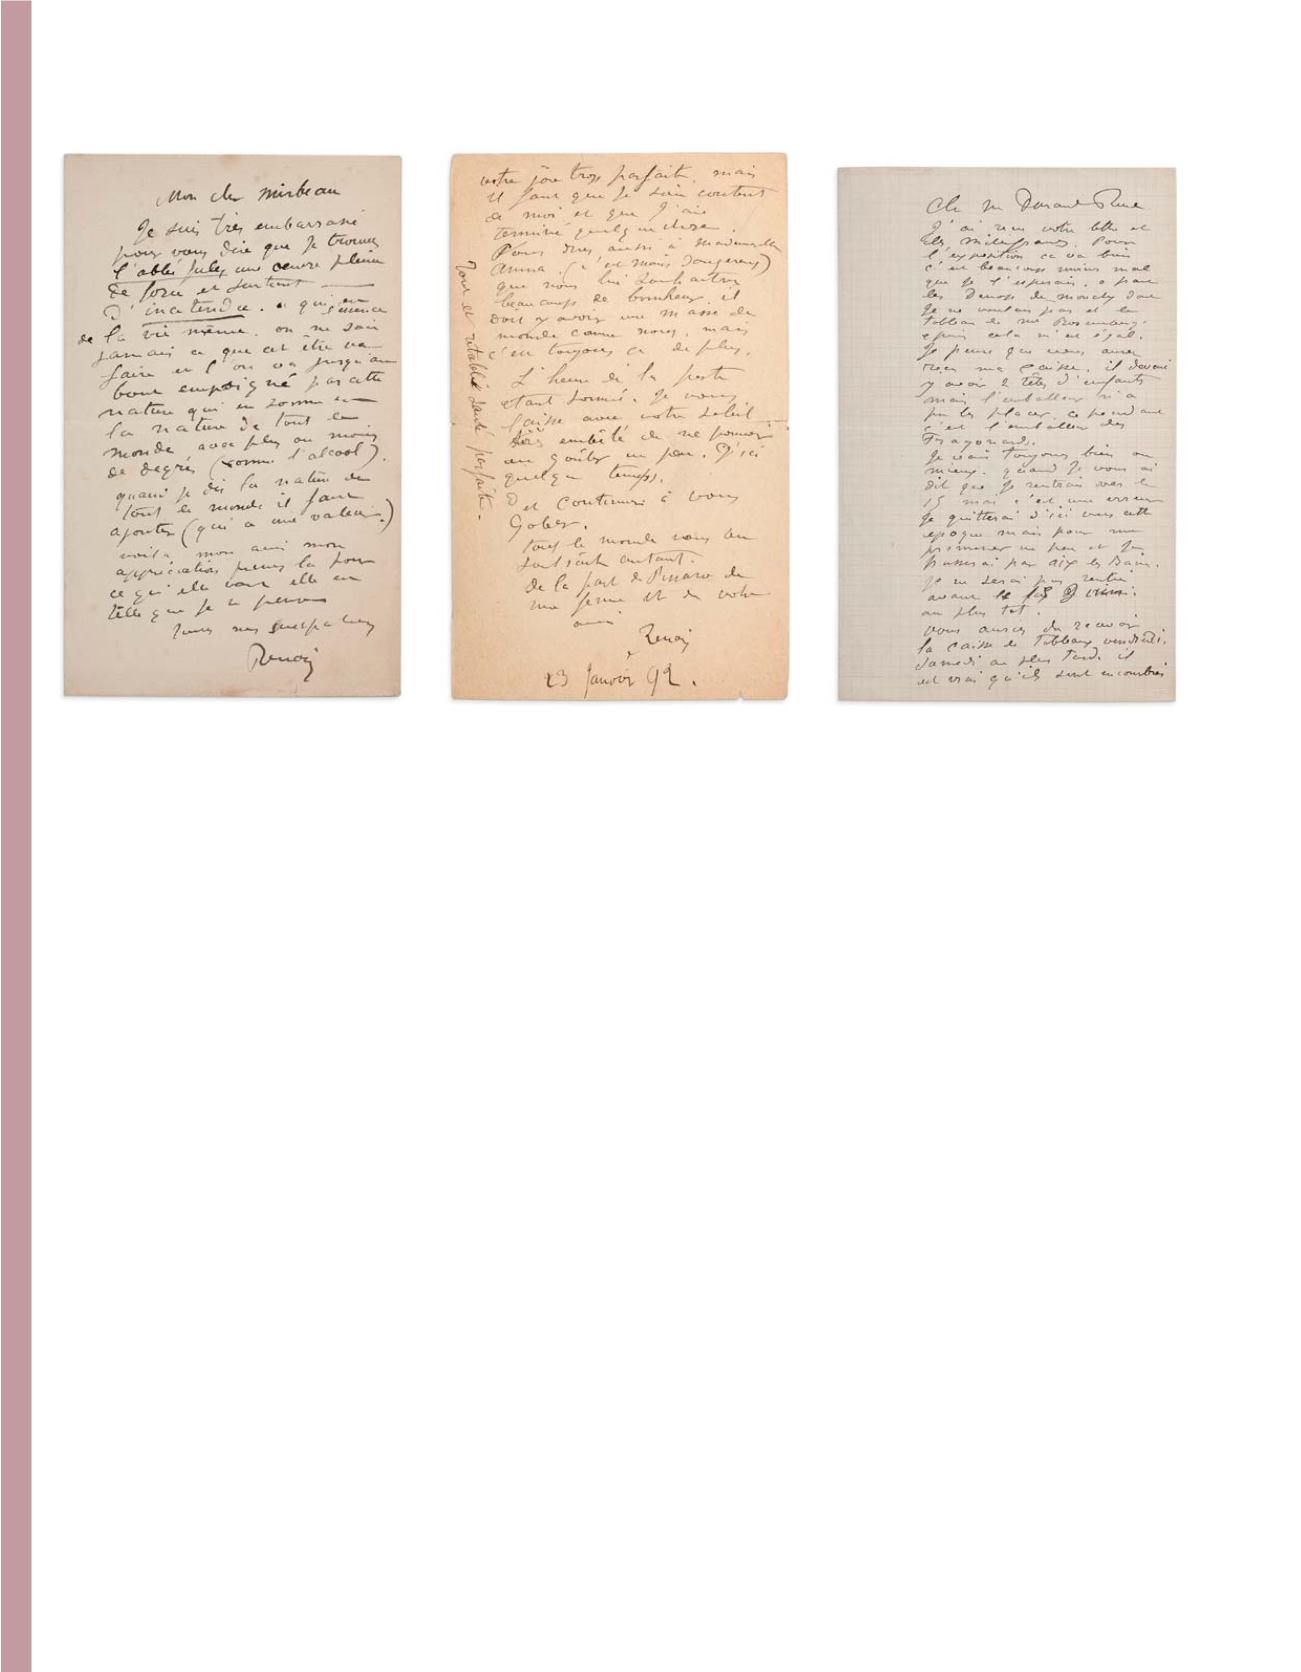 Mon cher Mirbeau
Je suis très embarrassé
pour vous dire que Je trouve
l'abbé Jules une œuvre pleine
de force et surtout
d'incertitude. ce qui est l'essence
de la vie même. on ne sait
jamais ce que cet être va
faire et l'on va jusqu'au
bout empoigné par cette
nature qui en somme est
la nature de tout le
monde avec plus ou moins
de degrés (comme l'alcool).
quand je dis la nature de
tout le monde il faut
ajouter (qui a une valeur.)
voila mon ami mon
appréciation prenez la pour
ce qu'elle vaut elle est
telle que Je la pense
Renoir
votre joie trop parfaite. mais
il faut que Je sois content
de moi et que J'aie
terminé quelque chose.
Vous direz aussi à Mademoiselle
Anna. (c'est moins dangereux)
que nous lui souhaitons
beaucoup de bonheur. il
doit y avoir une masse de
monde comme nous, mais
c'est toujours ça de plus.
L'heure de la poste
étant sonnée. Je vous
laisse avec votre soleil
très embêté de ne pouvoir
en goûter un peu. D'ici
quelque temps.
Et continuer à vous
Gober.
tout le monde vous en
souhaite autant.
de la part de Pissaro de
ma femme et de votre
ami
Renoir
23 Janvier 92.
Tout est rétabli santé parfaite.
Ch Mr Durand Ruel
J'ai reçu votre lettre et
les mille francs. Pour
l'exposition ça va bien
c'est beaucoup moins mal
que je l'esperais. a part
les Danses de mouchy dont
Je ne voulais pas et le
tableau de me Rosenberg.
apres cela m'est égal.
Je pense que vous aurez
reçu ma caisse. il devait
y avoir 2 têtes d'enfants
mais l'emballeur n'a
pu les placer. cependant
c'est l'emballeur des
Fragonards.
Je vais toujours bien ou
mieux. quand Je vous ai
dit que Je rentrais vers le
15 mai c'est une erreur
Je quitterai d'ici vers cette
epoque mais pour me
promener un peu et Je
passerai par aix les Bains.
Je ne serai pas rentré
avant le
au plus tot.
vous aurez du recevoir
la caisse de tableaux vendredi.
Samedi au plus tard. il
est vrai qu'ils sont encombrés